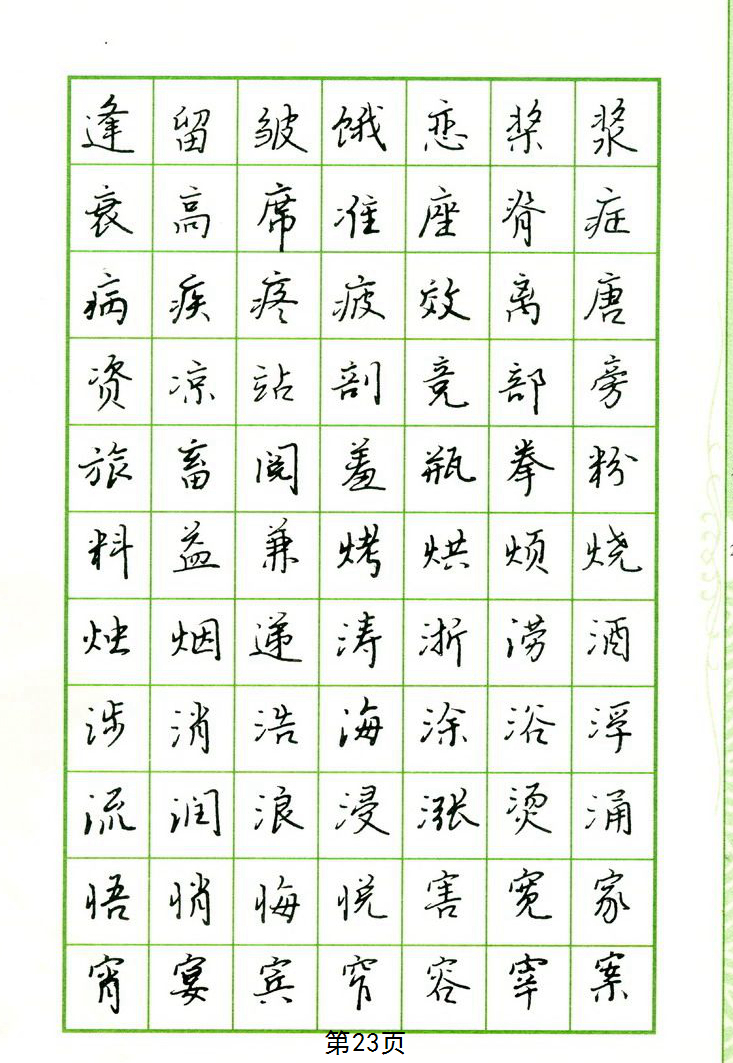 逢留皱饿恋桨浆
衰高席准座脊症
病疾疼疲效离唐
资凉站剖竞部旁
旅畜阅羞瓶拳粉
料益兼烤烘烦烧
烛烟递涛浙涝酒
涉消浩海涂浴浮
流润浪浸涨烫涌
悟悄悔悦害宽家
宵宴宾窄容宰案
第23页